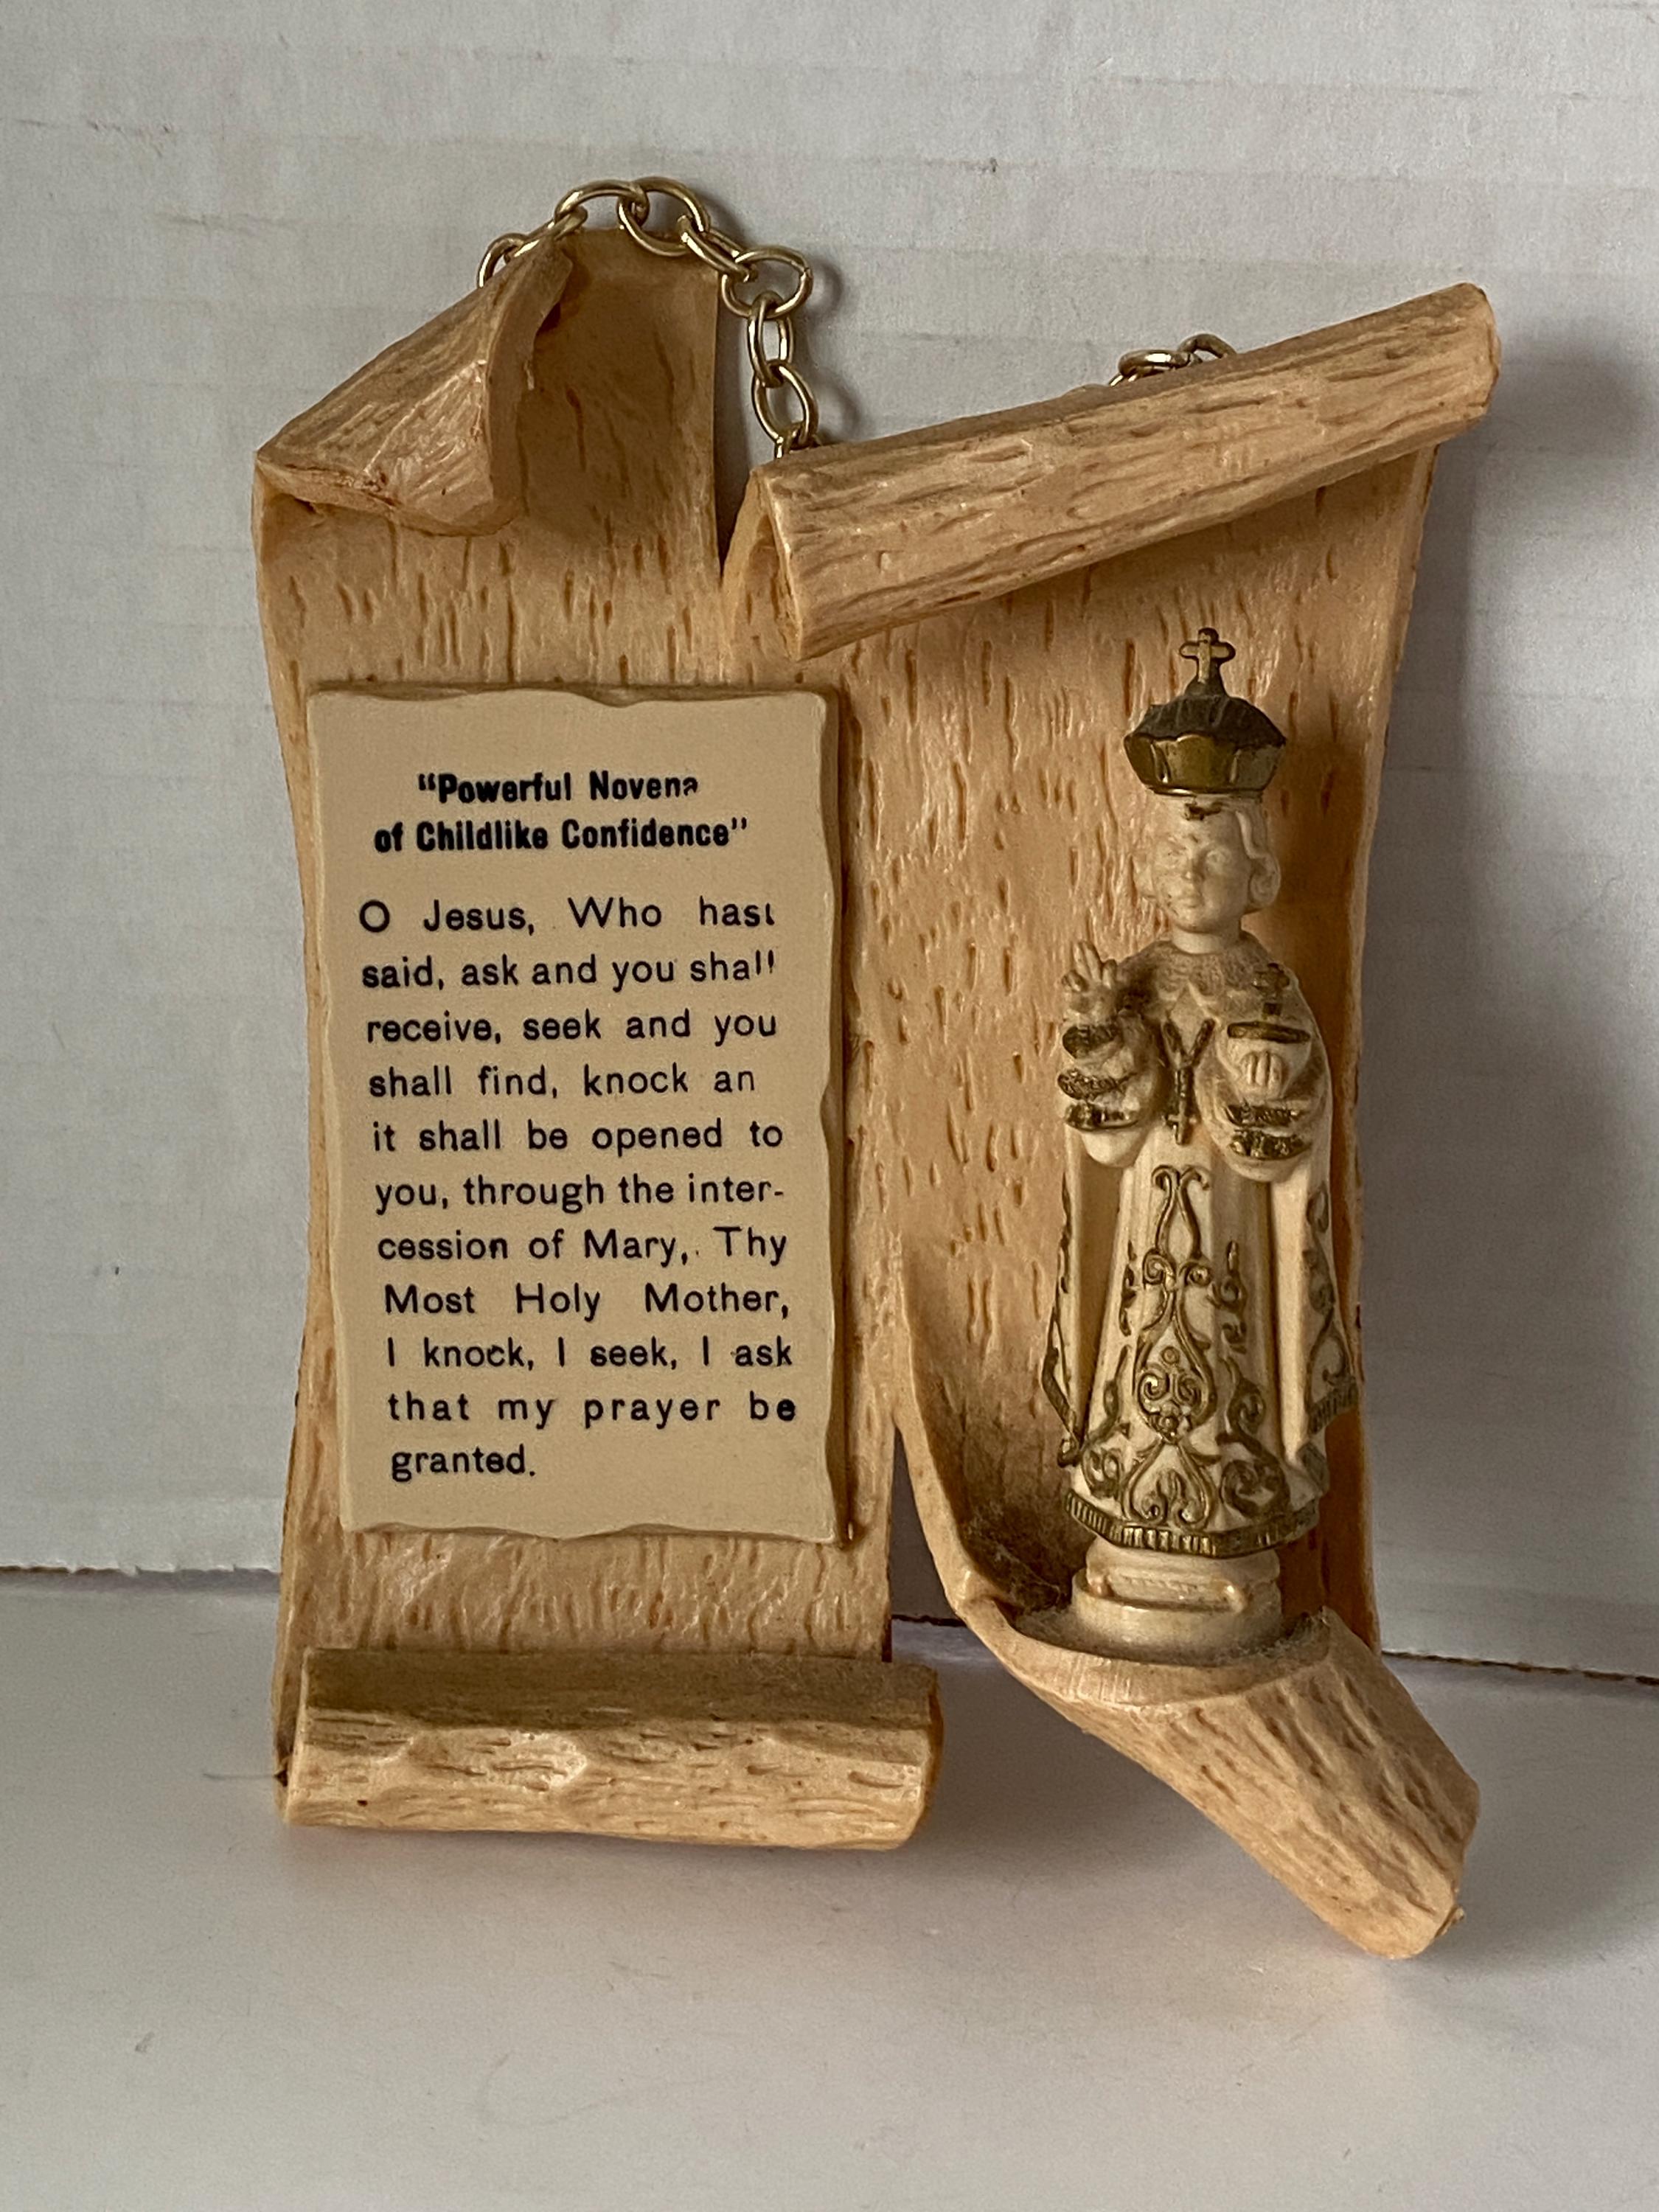 "Powerful Novena
of Childlike Confidence"
O Jesus, Who hast
said, ask and you shall
receive, seek and you
shall find, knock an
it shall be opened to
you, through the inter-
cession of Mary, Thy
Most Holy Mother,
I knock, I seek, I ask
that my prayer be
granted.